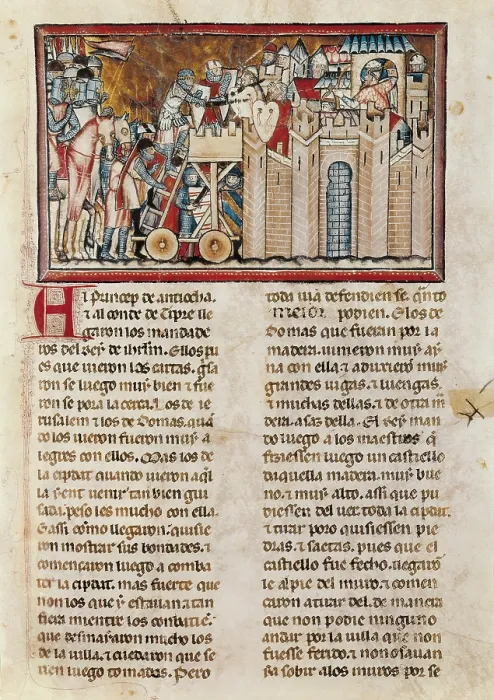 Al Princep de antiocha.
⁊ al conde de Tipre lle
garon los mandade
ros del Rey de iherlm̃. Ellos pu
es que uieron las cartas. gisa
ron se luego muy bien ⁊ fue
ron se pora la cerca. Los de ie
rusalem ⁊ los de Domas. quã
do los uieron fueron muy a
legres con ellos. Mas los de
la cipdat quando uieron aq̃l
la yent uenir tan bien gui
sada. peso les mucho con ella.
Gassi como llegaron. quisie
ron mostrar sus bondades. ⁊
començaron luego a comba
ter la cipdat. mas fuerte que
non los que y estauan a tan
fiera mientre los conbatiẽ.
que desmayaron mucho los
de la uilla. ⁊ cuedaron que se
rien luego tomados. Pero
toda uia defendien se. quãto
meior podien. Elos de
Domas que fueran por la
madera. uinieron muy ay
na con ella ⁊ aduxieron muy
grandes uigas. ⁊ luengas.
⁊ muchas dellas. ⁊ de otra m̃
dera. assaz della. El Rey man
do luego a los maestros q̃
fiziessen luego un castiello
daquella madera. muy bue
no. ⁊ muy alto. assi que pu
diessen del uer toda la cipdat.
⁊ tirar poro quisiessen pie
dras. ⁊ saetas. pues que el
castiello fue fecho. llegarõ
le al pie del muro. ⁊ comen
çaron a tirar del. de manera
que non podie ninguno
andar por la uilla que non
fuesse ferido. ⁊ non osauan
ya sobir alos muros por se